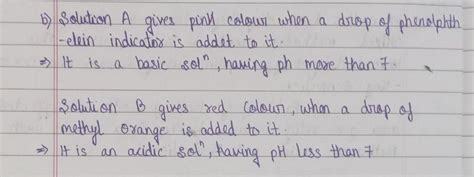 b) Solution A gives pink colour when a drop of phenolphth
-elein indicator is addet to it.
⇒ It is a basic solⁿ, having ph more than 7.
Solution B gives red colour, when a drop of
methyl orange is added to it.
⇒ It is an acidic solⁿ, having pH less than 7